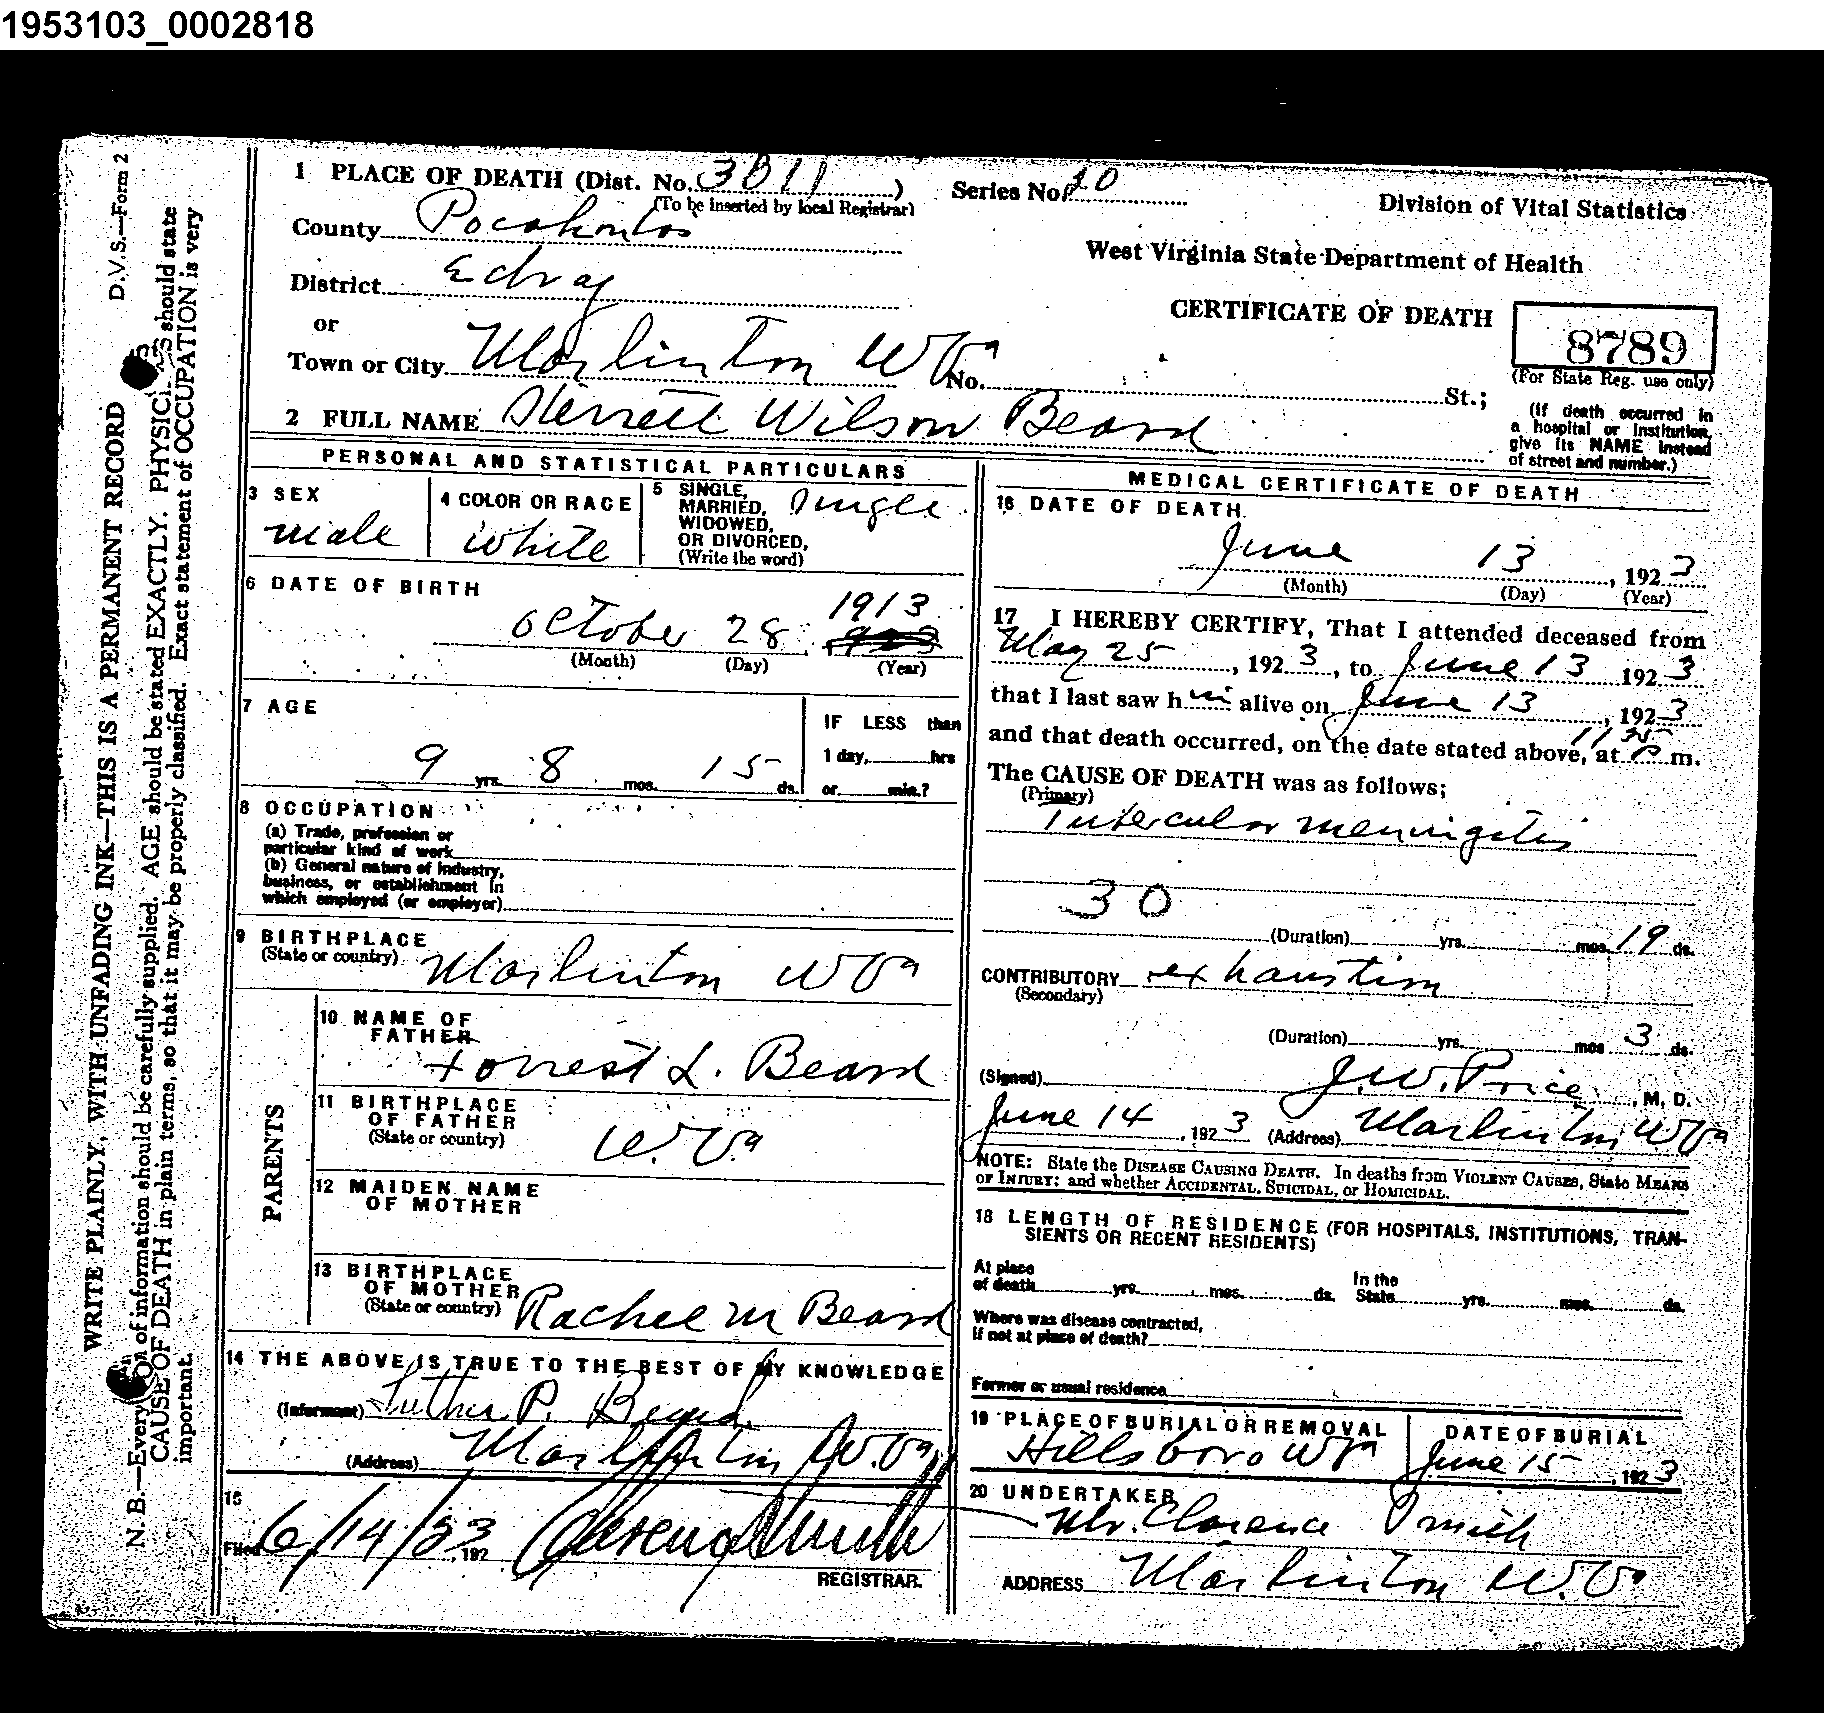 1953103_0002818
D.V.S.—Form 2
WRITE PLAINLY, WITH UNFADING INK—THIS IS A PERMANENT RECORD
N. B.—Every of information should be carefully supplied. AGE should be stated EXACTLY. PHYSICI S should state
CAUSE OF DEATH in plain terms, so that it may be properly classified. Exact statement of OCCUPATION is very
important.
1 PLACE OF DEATH (Dist. No. 3811)
(To be inserted by local Registrar)
Series No. 20
Division of Vital Statistics
County Pocahontas
West Virginia State Department of Health
District Edray
CERTIFICATE OF DEATH
8789
(For State Reg. use only)
or
Town or City Marlinton W Va No. St.;
(If death occurred in
a hospital or Institution,
give its NAME instead
of street and number.)
2 FULL NAME Wilson Beard
PERSONAL AND STATISTICAL PARTICULARS
3 SEX
male
4 COLOR OR RACE
white
5 SINGLE,
MARRIED,
WIDOWED,
OR DIVORCED,
(Write the word)
Single
6 DATE OF BIRTH
October 28 1913
(Month) (Day) (Year)
7 AGE
9 yrs. 8 mos. 15 ds.
IF LESS than
1 day, hrs
or min.?
8 OCCUPATION
(a) Trade, profession or
particular kind of work
(b) General nature of Industry,
business, or establishment in
which employed (or employer)
9 BIRTHPLACE
(State or country) Marlinton W Va
PARENTS
10 NAME OF
FATHER
Forrest L. Beard
11 BIRTHPLACE
OF FATHER
(State or country) W. Va
12 MAIDEN NAME
OF MOTHER
13 BIRTHPLACE
OF MOTHER
(State or country) Rachel M Beard
14 THE ABOVE IS TRUE TO THE BEST OF MY KNOWLEDGE
(Informant) Luther P. Beard
(Address) Marlinton W. Va
15
Filed 6/14/23, 192
REGISTRAR.
MEDICAL CERTIFICATE OF DEATH
16 DATE OF DEATH
June 13, 1923
(Month) (Day) (Year)
17 I HEREBY CERTIFY, That I attended deceased from
May 25, 1923, to June 13 1923
that I last saw him alive on June 13, 1923
and that death occurred, on the date stated above, at 11 35 P m.
The CAUSE OF DEATH was as follows;
(Primary)
Tubercular meningitis
30
(Duration) yrs. mos. 19 ds.
CONTRIBUTORY exhaustion
(Secondary)
(Duration) yrs. mos 3 ds.
(Signed) J.W. Price, M. D.
June 14, 1923 (Address) Marlinton W Va
NOTE: State the DISEASE CAUSING DEATH. In deaths from VIOLENT CAUSES, State MEANS
OF INJURY; and whether ACCIDENTAL, SUICIDAL, or HOMICIDAL.
18 LENGTH OF RESIDENCE (FOR HOSPITALS, INSTITUTIONS, TRAN-
SIENTS OR RECENT RESIDENTS)
At place
of death yrs. mos. ds.
In the
State yrs. mos. ds.
Where was disease contracted,
If not at place of death?
Former or usual residence
19 PLACE OF BURIAL OR REMOVAL
Hillsboro W Va
DATE OF BURIAL
June 15, 1923
20 UNDERTAKER
Mr. Clarence Smith
ADDRESS Marlinton W. Va